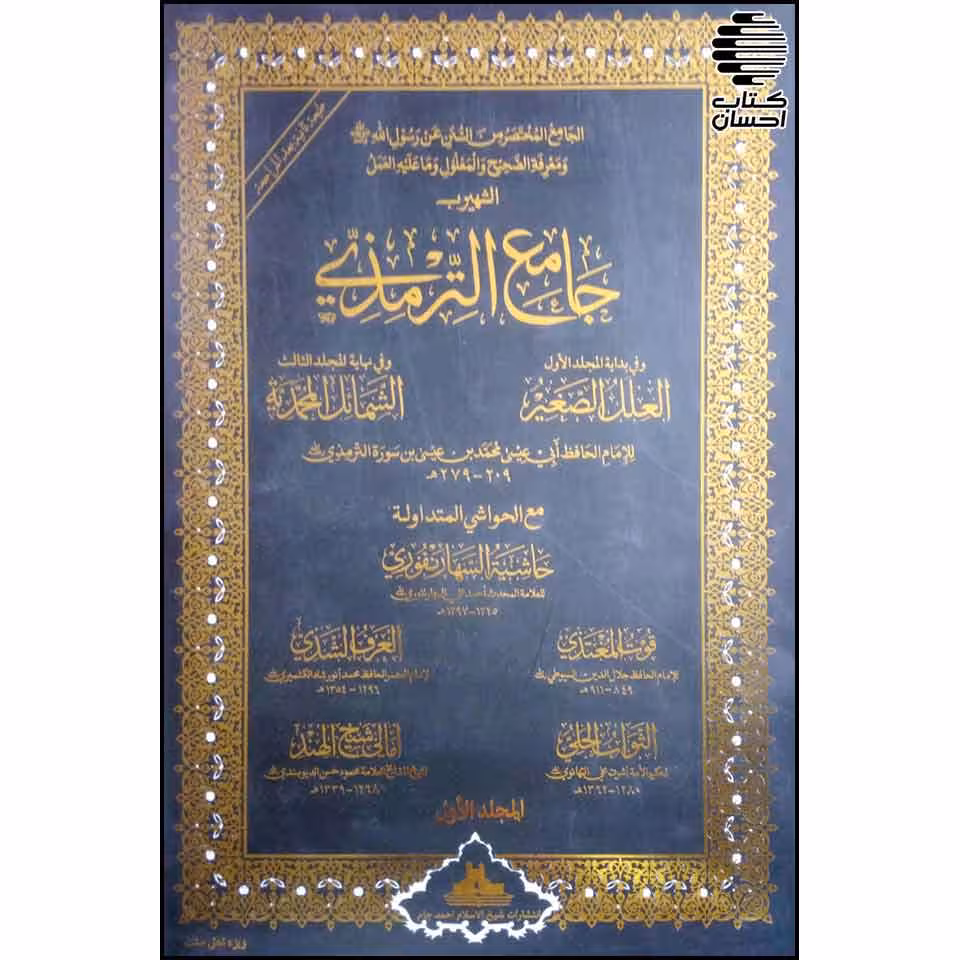 کتاب
احسان
الجامع المختصر من السنن عن رسول الله ﷺ
ومعرفة الصحيح والمعلول وما عليه العمل
الشهير بـ
جامع الترمذي
وفي بداية المجلد الأول
العلل الصغير
وفي نهاية المجلد الثالث
الشمائل المحمدية
للإمام الحافظ أبي عيسى محمد بن عيسى بن سورة الترمذي
٢٠٩-٢٧٩هـ
مع الحواشي المتداولة
حاشية السهارنفوري
للعلامة المحدث أحمد علي السهارنفوري
١٢٢٥-١٢٩٧هـ
قوت المغتذي
للإمام الحافظ جلال الدين السيوطي
٨٤٩-٩١١هـ
العرف الشذي
للإمام العصر الحافظ محمد أنور شاه الكشميري
١٢٩٦-١٣٥٤هـ
الثواب الحلي
لحكيم الأمة أشرف علي التهانوي
١٢٨٠-١٣٦٢هـ
أمالي شيخ الهند
لشيخ المشايخ العلامة محمود حسن الديوبندي
١٢٦٨-١٣٣٩هـ
المجلد الأول
انتشارات شيخ الاسلام احمد جام
ویژه اهل سنت